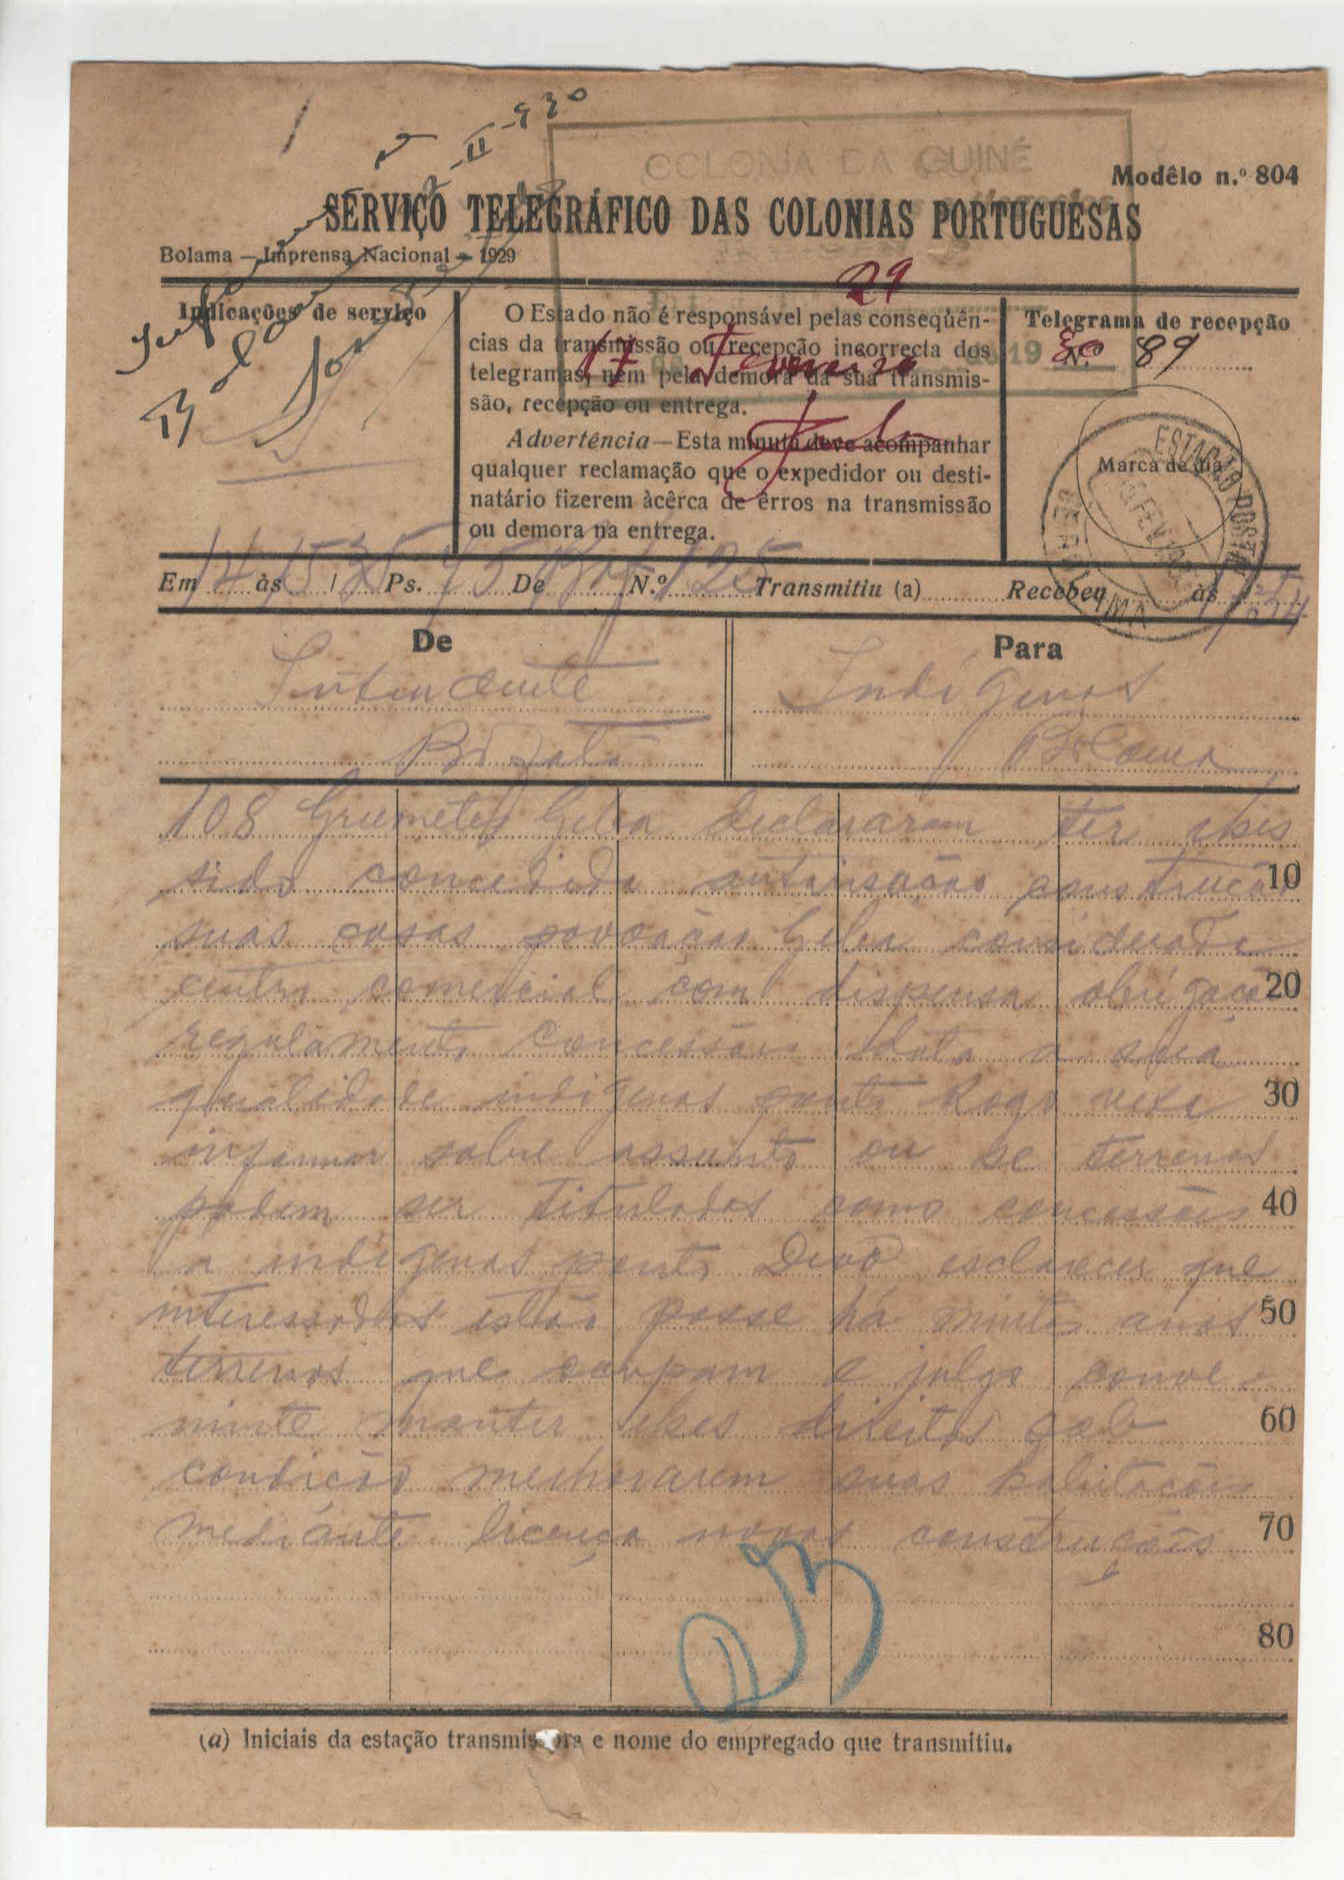 COLONIA DA GUINÉ
Modêlo n.º 804
SERVIÇO TELEGRÁFICO DAS COLONIAS PORTUGUESAS
Bolama — Imprensa Nacional — 1929
29
Indicações de serviço
O Estado não é responsável pelas conseqùên-
cias da transmissão ou recepção incorrecta dos
telegramas, nem pela demora da sua transmis-
são, recepção ou entrega.
17 Fevereiro 1930
Advertência — Esta minuta deve acompanhar
qualquer reclamação que o expedidor ou desti-
natário fizerem àcêrca de êrros na transmissão
ou demora na entrega.
Telegrama de recepção
N.º 89
Marca de dia
ESTAÇÃO POSTAL
Em 14 às 15 35 Ps. 75 De N.º 125 Transmitiu (a) Recebeu às
De
Para
Intendente
Indígenas
Bafatá
Bolama
108 Grumetes Geba declararam ter lhes
sido concedida autorisação construção 10
suas casas povoação Geba considerada
centro comercial com dispensa obrigação 20
regulamento concessões data a sua
qualidade indígenas ponto Rogo vexa 30
informar sobre assunto ou se terrenos
podem ser titulados como concessões 40
a indígenas ponto Devo esclarecer que
interessados estão posse há muitos anos 50
terrenos que ocupam e julgo conve-
niente manter lhes direitos sob 60
condição melhorarem suas habitações
mediante licença novas construções 70
80
(a) Iniciais da estação transmissora e nome do empregado que transmitiu.